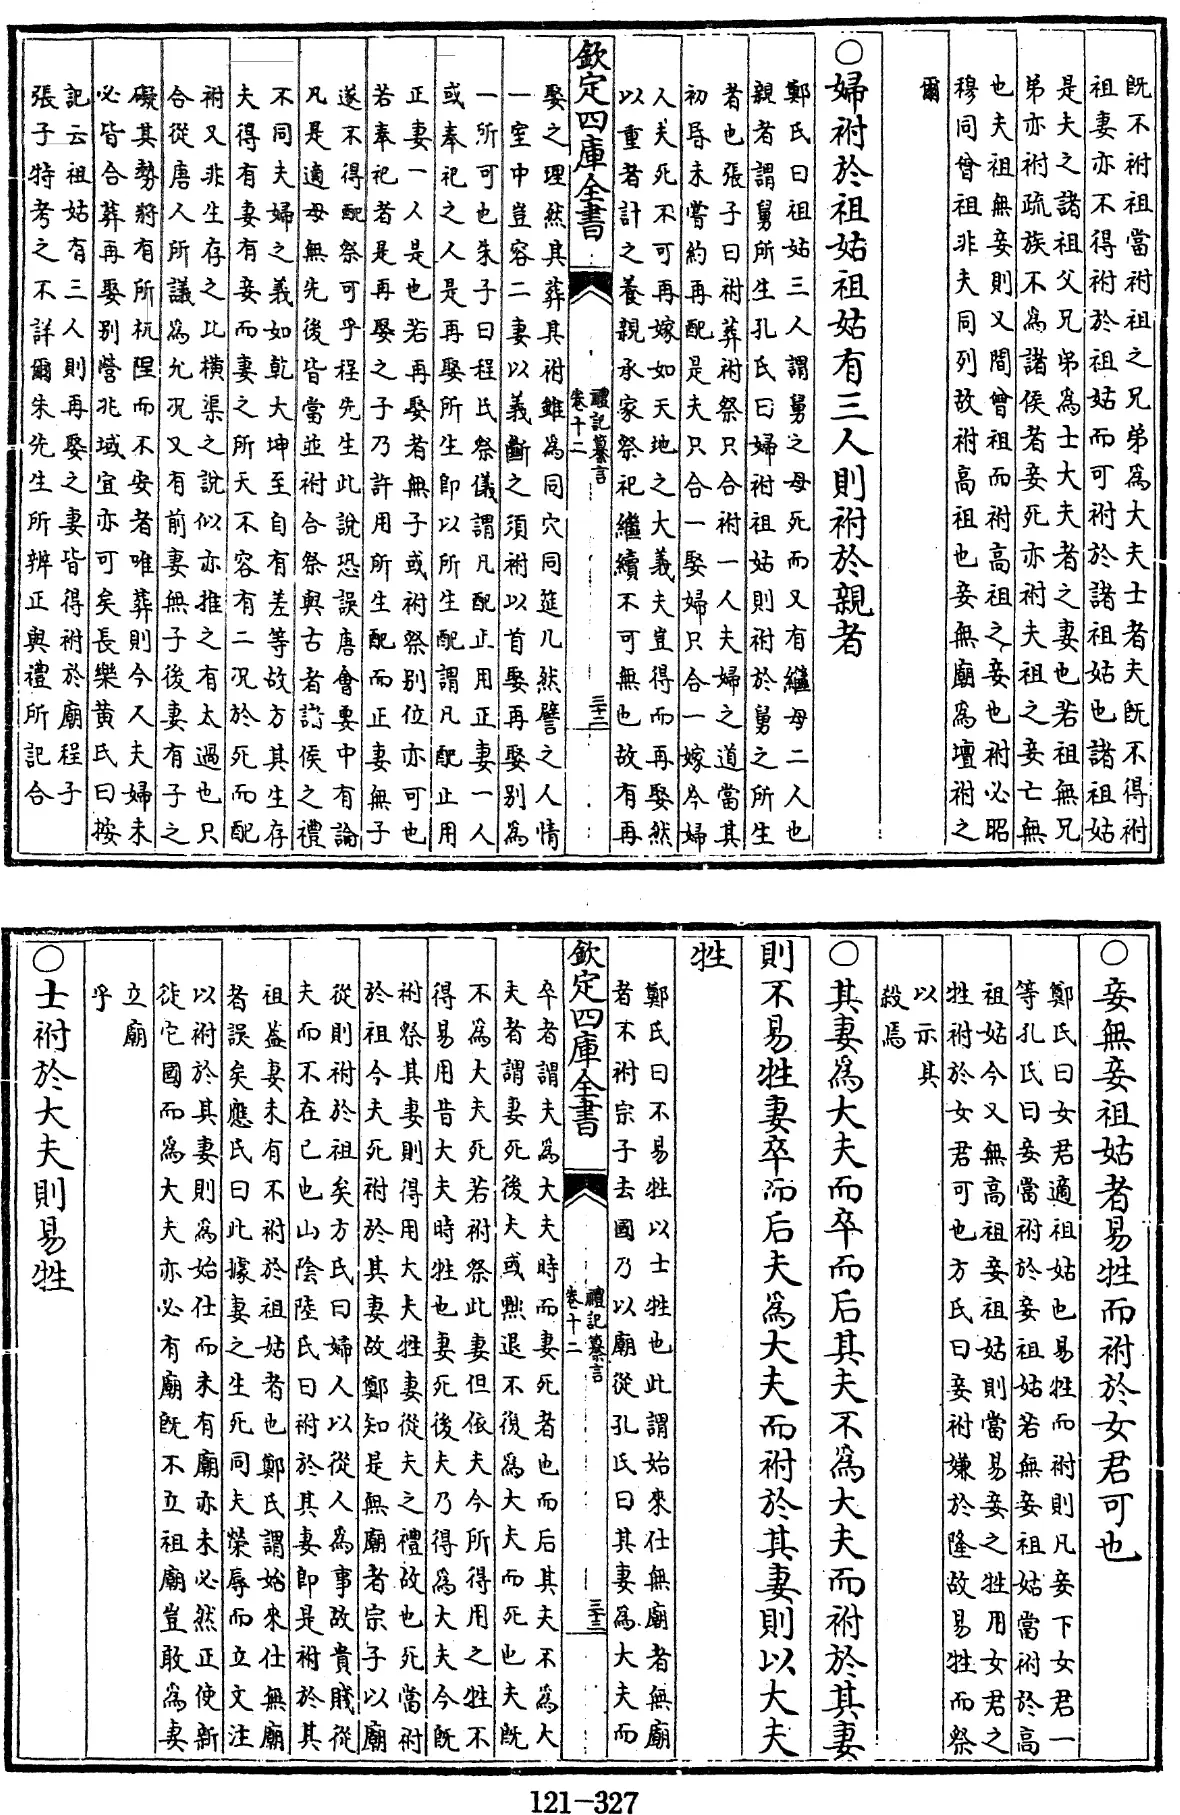 既不祔祖當祔祖之兄弟爲大夫士者夫既不得祔
祖妻亦不得祔於祖姑而可祔於諸祖姑也諸祖姑
是夫之諸祖父兄弟爲士大夫者之妻也若祖無兄
弟亦祔疏族不爲諸侯者妾死亦祔夫祖之妾亡無
也夫祖無妾則又間曾祖而祔高祖之妾也祔必昭
穆同曾祖非夫同列故祔高祖也妾無廟爲壇祔之
爾
○婦祔於祖姑祖姑有三人則祔於親者
鄭氏曰祖姑三人謂舅之母死而又有繼母二人也
親者謂舅所生孔氏曰婦祔祖姑則祔於舅之所生
者也張子曰祔葬祔祭只合祔一人夫婦之道當其
初昏未嘗約再配是夫只合一娶婦只合一嫁今婦
人夫死不可再嫁如天地之大義夫豈得而再娶然
以重者計之養親承家祭祀繼續不可無也故有再
欽定四庫全書
禮記纂言
卷十二
三十二
娶之理然其葬其祔雖爲同穴同筵几然譬之人情
一室中豈容二妻以義斷之須祔以首娶再娶别爲
一所可也朱子曰程氏祭儀謂凡配止用正妻一人
或奉祀之人是再娶所生即以所生配謂凡配止用
正妻一人是也若再娶者無子或祔祭别位亦可也
若奉祀者是再娶之子乃許用所生配而正妻無子
遂不得配祭可乎程先生此說恐誤唐會要中有論
凡是適母無先後皆當並祔合祭與古者諸侯之禮
不同夫婦之義如乾大坤至自有差等故方其生存
夫得有妻有妾而妻之所天不容有二况於死而配
祔又非生存之比横渠之說似亦推之有太過也只
合從唐人所議爲允况又有前妻無子後妻有子之
礙其勢將有所杌隉而不安者唯葬則今人夫婦未
必皆合葬再娶别營兆域宜亦可矣長樂黄氏曰按
記云祖姑有三人則再娶之妻皆得祔於廟程子
張子特考之不詳爾朱先生所辨正與禮所記合
○妾無妾祖姑者易牲而祔於女君可也
鄭氏曰女君適祖姑也易牲而祔則凡妾下女君一
等孔氏曰妾當祔於妾祖姑若無妾祖姑當祔於高
祖姑今又無高祖妾祖姑則當易妾之牲用女君之
牲祔於女君可也方氏曰妾祔嫌於隆故易牲而祭
以示其
殺焉
○其妻爲大夫而卒而后其夫不爲大夫而祔於其妻
則不易牲妻卒而后夫爲大夫而祔於其妻則以大夫
牲
鄭氏曰不易牲以士牲也此謂始來仕無廟者無廟
者不祔宗子去國乃以廟從孔氏曰其妻爲大夫而
欽定四庫全書
禮記纂言
卷十二
三十三
卒者謂夫爲大夫時而妻死者也而后其夫不爲大
夫者謂妻死後夫或黜退不復爲大夫而死也夫既
不爲大夫死若祔祭此妻但依夫今所得用之牲不
得易用昔大夫時牲也妻死後夫乃得爲大夫今既
祔祭其妻則得用大夫牲妻從夫之禮故也死當祔
於祖今夫死祔於其妻故鄭知是無廟者宗子以廟
從則祔於祖矣方氏曰婦人以從人爲事故貴賤從
夫而不在已也山陰陸氏曰祔於其妻即是祔於其
祖葢妻未有不祔於祖姑者也鄭氏謂始來仕無廟
者誤矣應氏曰此據妻之生死同夫榮辱而立文注
以祔於其妻則爲始仕而未有廟亦未必然正使新
徙它國而爲大夫亦必有廟既不立祖廟豈敢爲妻
立廟
乎
○士祔於大夫則易牲
121-327